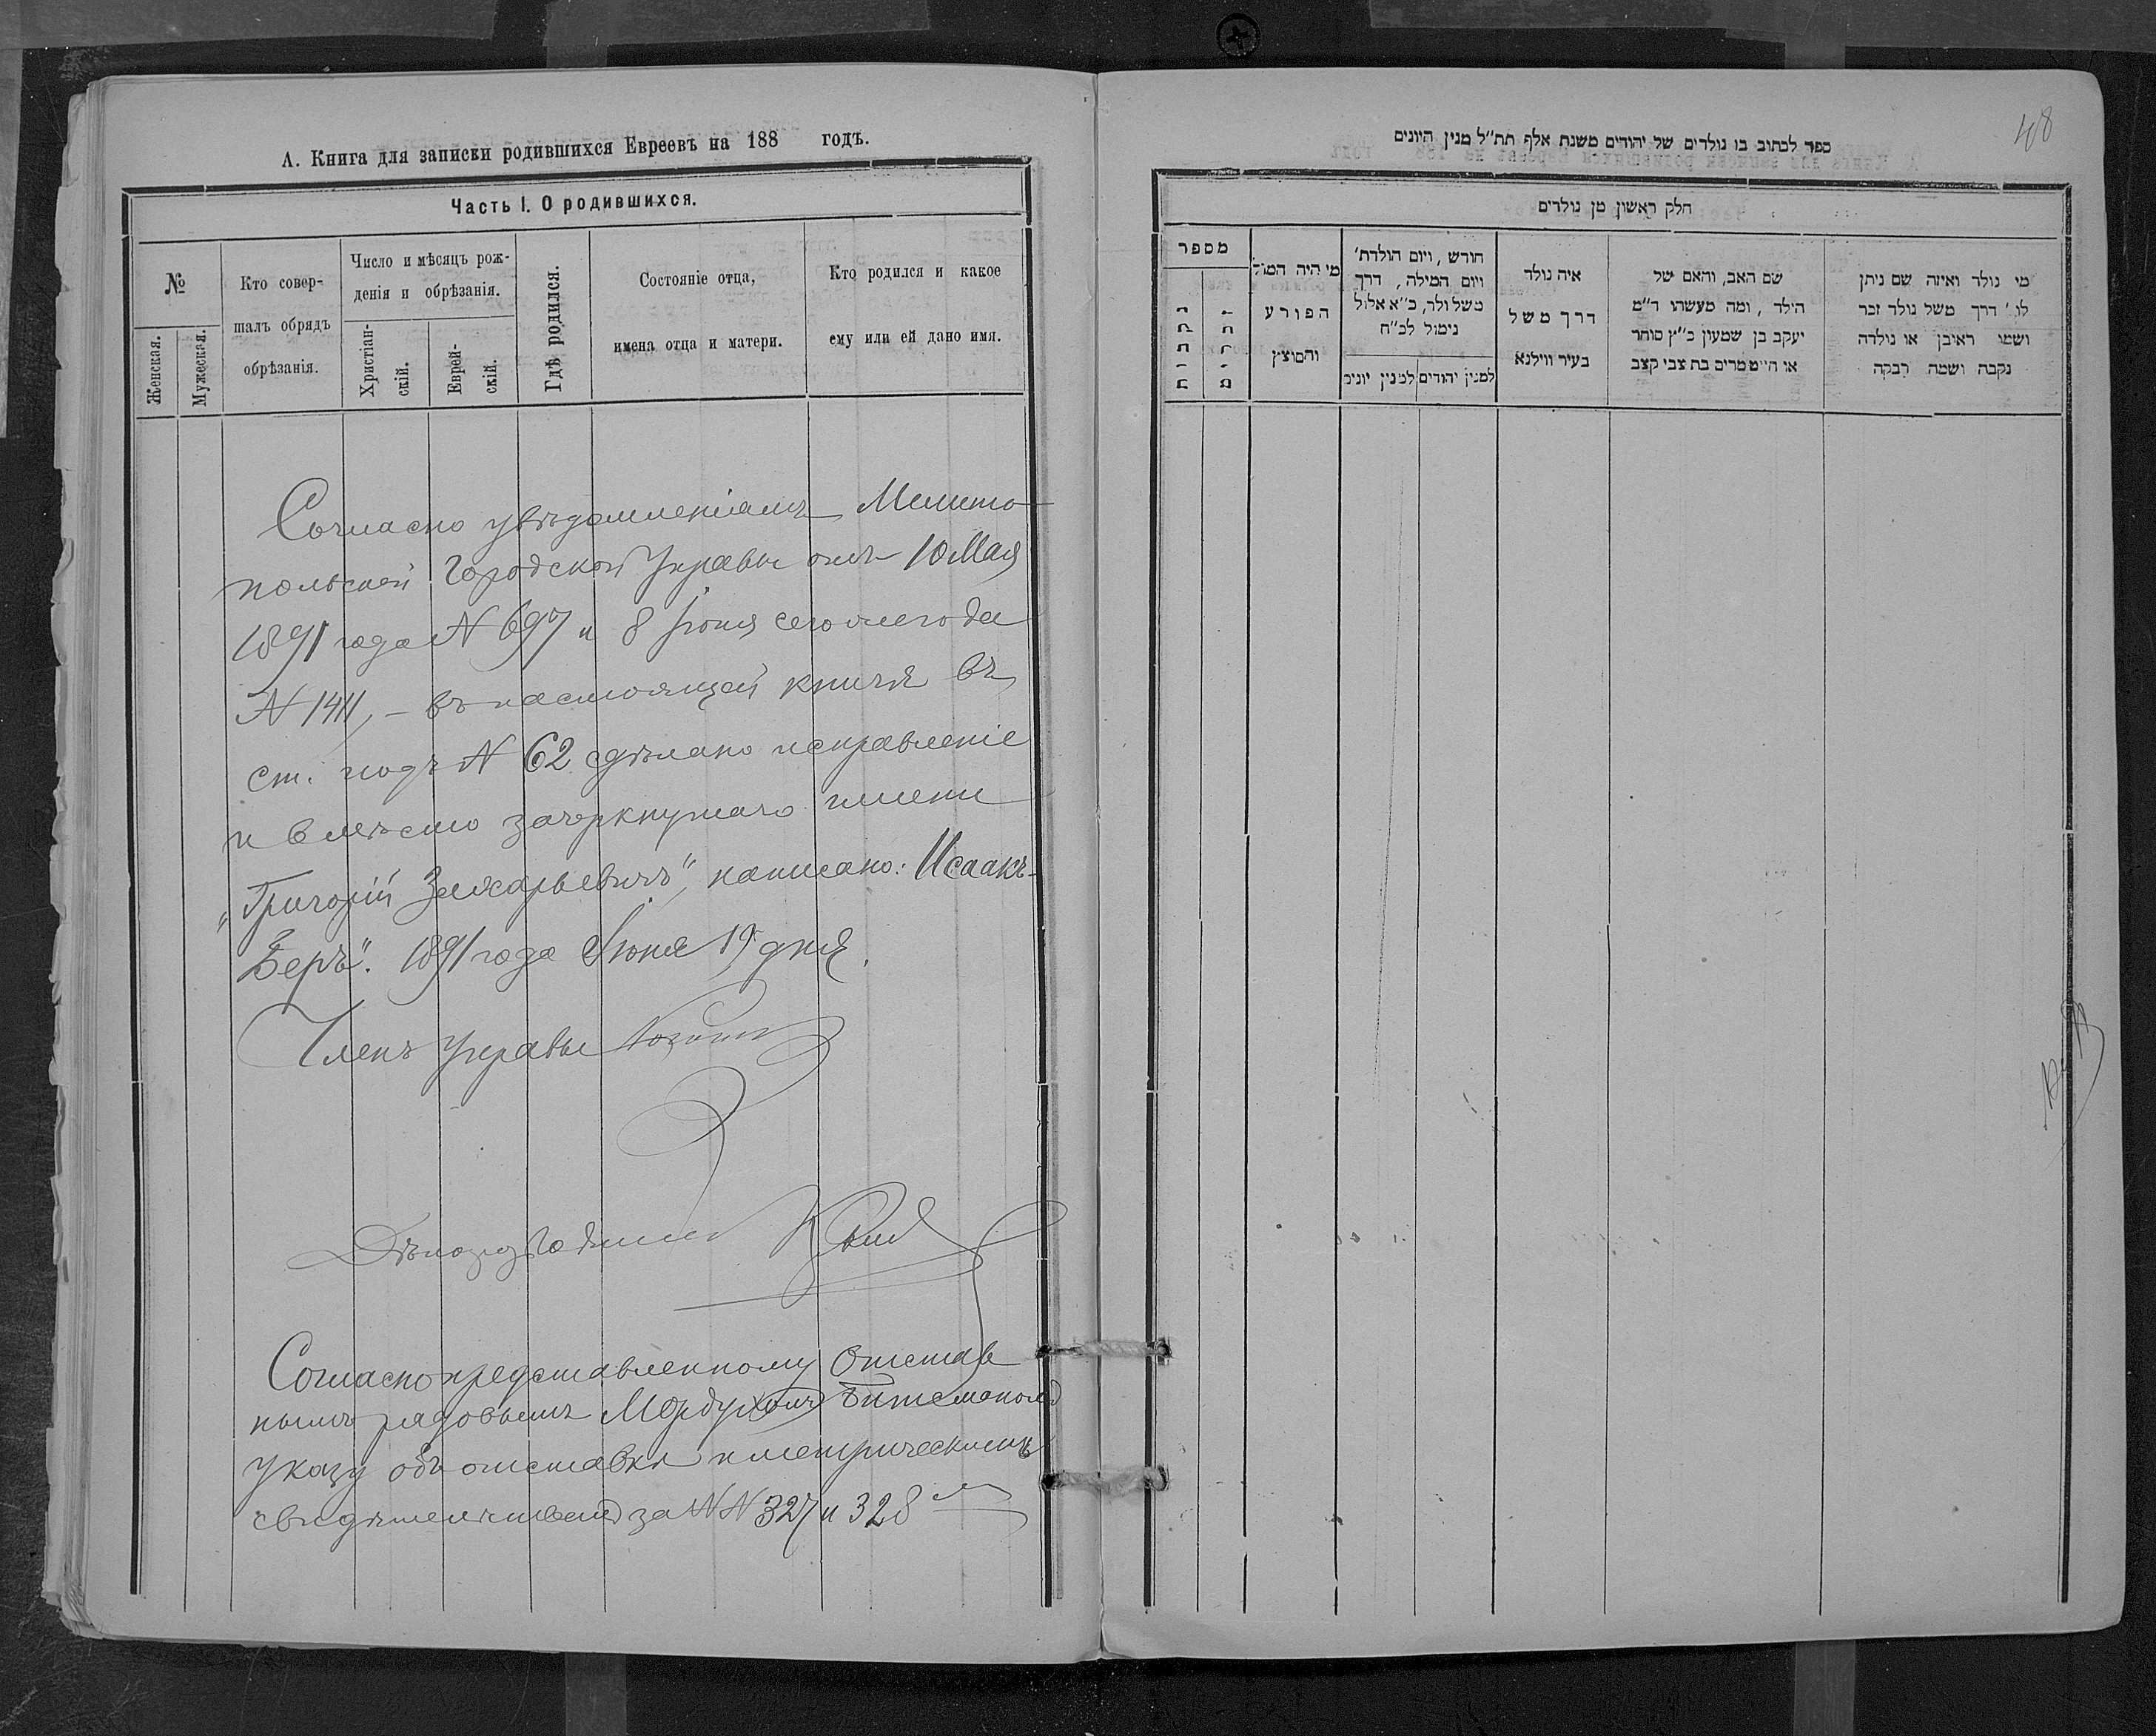 А. Книга для записки родившихся Евреевъ на 188 годъ.
Часть I. О родившихся.
№
Женская.
Мужеская.
Кто совер-
шалъ обрядъ
обрѣзанія.
Число и мѣсяцъ рож-
денія и обрѣзанія.
Христіан-
скій.
Еврей-
скій.
Гдѣ родился.
Состояніе отца,
имена отца и матери.
Кто родился и какое
ему или ей дано имя.
Согласно увѣдомленіямъ Мелито-
польской Городской Управы отъ 10 Мая
1891 года N 697 и 8 Іюня сего же года
N 1411, – въ настоящей книгѣ въ
ст. подъ N 62 сдѣлано исправленіе
и вмѣсто зачеркнутаго имени
„Григорій Захарьевичъ", написано: Исаакъ-
Беръ". 1891 года Іюня 19 дня.
Членъ Управы
Дѣлопроизводитель
Согласно представленному Отстав
нымъ рядовымъ Мордухомъ
указу объ отставкѣ и метрическимъ
свидѣтельствамъ за NN 327 и 328
48
ספר לכתוב בו נולדים של יהודים משנת אלף תת״ל מנין היונים
חלק ראשון מן נולדים
מספר
נקבות
זכרים
מי היה המול
הפורע
והמוצץ
חודש, ויום הולדת'
ויום המילה, דרך
משל ולד, כ״א אלול
נימול לכ״ח
למנין יהודים
למנין יונים
איה נולד
דרך משל
בעיר ווילנא
שם האב, והאם של
הילד, ומה מעשהו ד״מ
יעקב בן שמעון כ״ץ סוחר
או הייט מרים בת צבי קצב
מי נולד ואיזה שם ניתן
לו' דרך משל נולד זכר
ושמו ראיבן או נולדה
נקבה ושמה רבקה